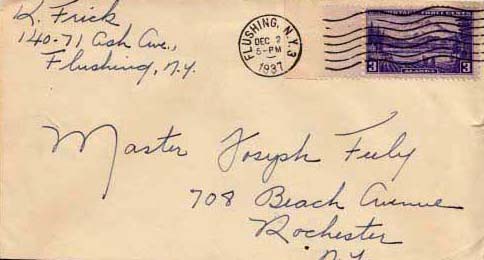 K. Frick
140-71 Ash Ave.,
Flushing, N.Y.
FLUSHING, N.Y. 3
DEC 2
5-PM
1937
POSTAGE THREE CENTS
3 ALASKA 3
Master Joseph Fuly
708 Beach Avenue
Rochester
N.Y.